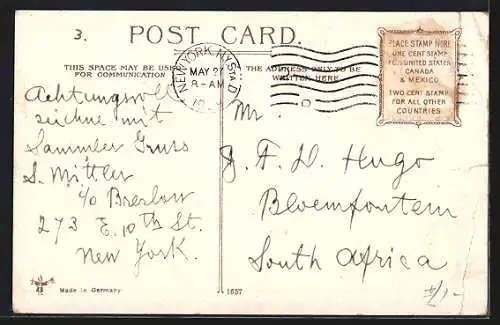 3.
POST CARD.
THIS SPACE MAY BE USED
FOR COMMUNICATION
THE ADDRESS ONLY TO BE
WRITTEN HERE
NEW YORK, N.Y. STA. D
MAY 27
8-AM
19
PLACE STAMP HERE
ONE CENT STAMP
FOR UNITED STATES
CANADA
& MEXICO
TWO CENT STAMP
FOR ALL OTHER
COUNTRIES
Achtungsvoll
zeichne mit
Sammler Gruss
S. Mittler
c/o Breslow
273 E. 10th St.
New York.
Mr.
J. F. D. Hugo
Bloemfontein
South Africa
Made in Germany
1657